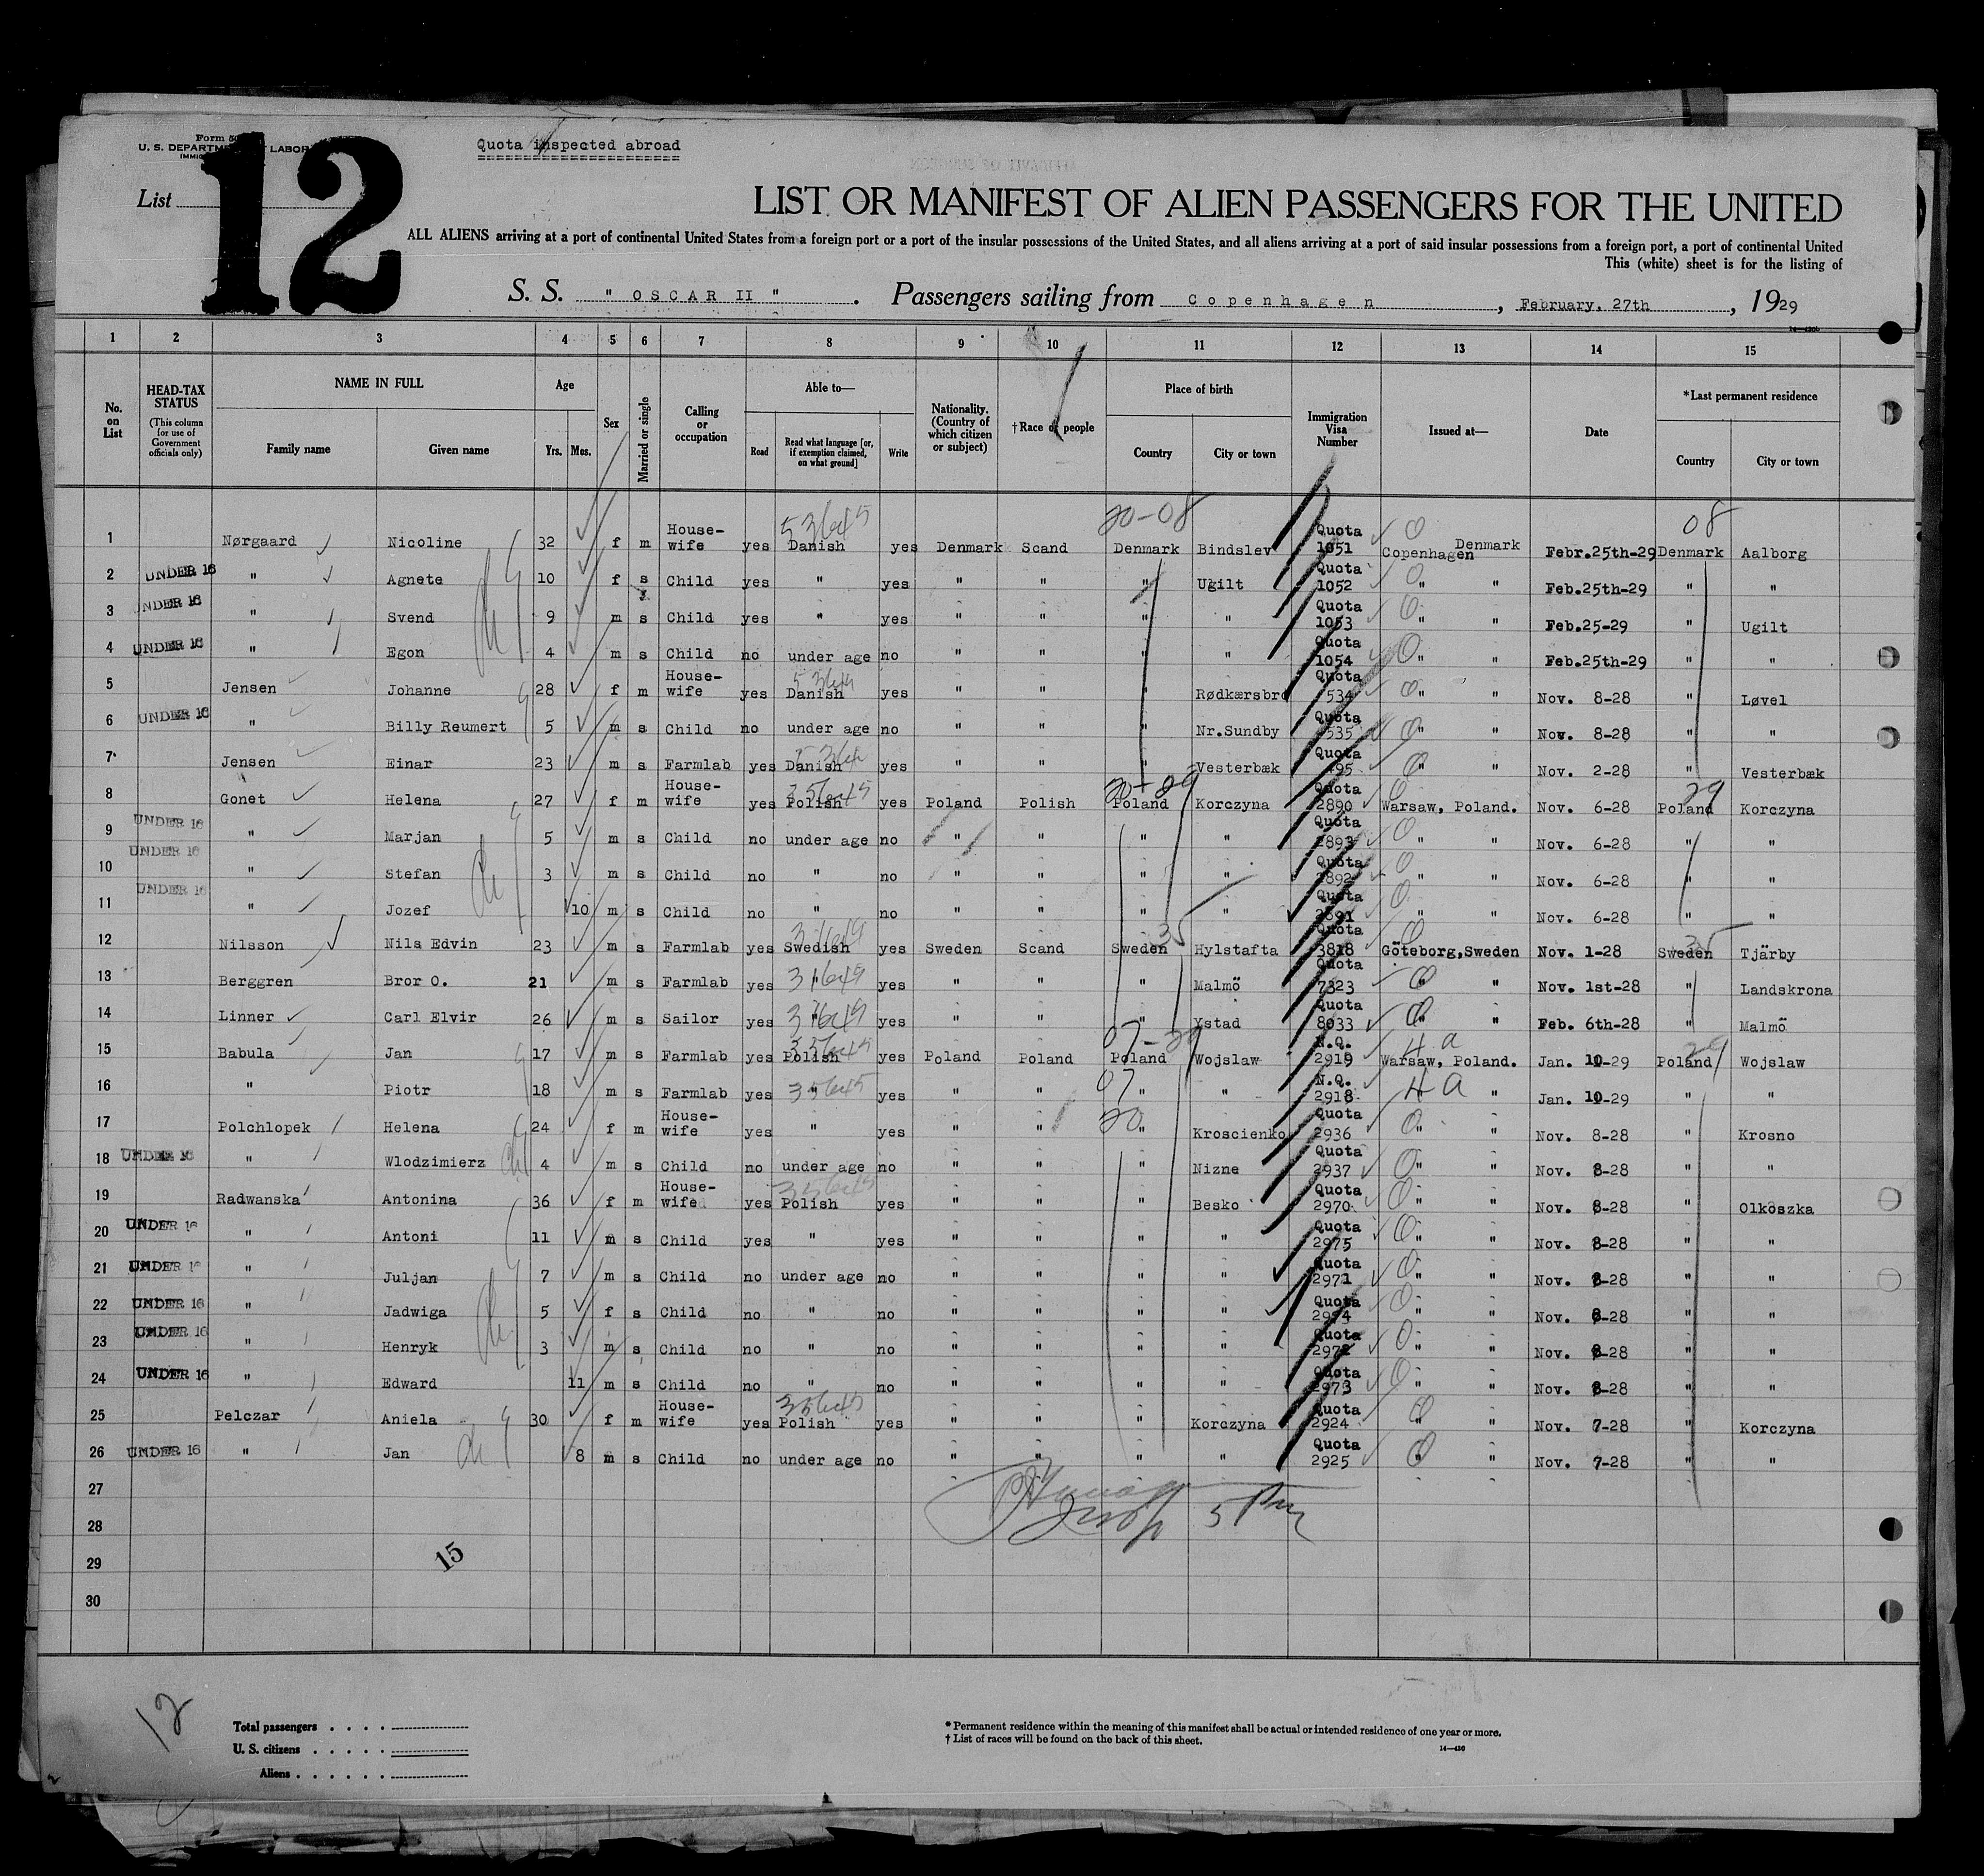 Form 50
U. S. DEPARTME LABOR
IMMIG
12
Quota inspected abroad
List
LIST OR MANIFEST OF ALIEN PASSENGERS FOR THE UNITED
ALL ALIENS arriving at a port of continental United States from a foreign port or a port of the insular possessions of the United States, and all aliens arriving at a port of said insular possessions from a foreign port, a port of continental United
This (white) sheet is for the listing of
S. S. " OSCAR II " . Passengers sailing from Copenhagen , February. 27th , 1929
1 2 3 4 5 6 7 8 9 10 11 12 13 14 15
No. on List
HEAD-TAX STATUS (This column for use of Government officials only)
NAME IN FULL Family name Given name
Age Yrs. Mos.
Sex
Married or single
Calling or occupation
Able to— Read Read what language [or, if exemption claimed, on what ground] Write
Nationality. (Country of which citizen or subject)
†Race of people
Place of birth Country City or town
Immigration Visa Number
Issued at—
Date
*Last permanent residence Country City or town
20-08 08
1 Nørgaard Nicoline 32 f m House-wife yes Danish yes Denmark Scand Denmark Bindslev Quota 1051 Copenhagen Denmark Febr.25th-29 Denmark Aalborg
2 UNDER 16 " Agnete 10 f s Child yes " yes " " " Ugilt Quota 1052 " " Feb.25th-29 " "
3 UNDER 16 " Svend 9 m s Child yes " yes " " " " Quota 1053 " " Feb.25-29 " Ugilt
4 UNDER 16 " Egon 4 m s Child no under age no " " " " Quota 1054 " " Feb.25th-29 " "
5 Jensen Johanne 28 f m House-wife yes Danish yes " " " Rødkærsbro Quota 534 " " Nov. 8-28 " Løvel
6 UNDER 16 " Billy Reumert 5 m s Child no under age no " " " Nr.Sundby Quota 535 " " Nov. 8-28 " "
7 Jensen Einar 23 m s Farmlab yes Danish yes " " " Vesterbæk Quota 495 " " Nov. 2-28 " Vesterbæk
8 Gonet Helena 27 f m House-wife yes Polish yes Poland Polish Poland Korczyna Quota 2890 Warsaw, Poland. Nov. 6-28 Poland Korczyna
9 UNDER 16 " Marjan 5 m s Child no under age no " " " " Quota 2893 " " Nov. 6-28 " "
10 UNDER 16 " Stefan 3 m s Child no " no " " " " Quota 2892 " " Nov. 6-28 " "
11 UNDER 16 " Jozef 10 m s Child no " no " " " " Quota 2891 " " Nov. 6-28 " "
12 Nilsson Nils Edvin 23 m s Farmlab yes Swedish yes Sweden Scand Sweden Hylstafta Quota 3818 Göteborg,Sweden Nov. 1-28 Sweden Tjärby
13 Berggren Bror O. 21 m s Farmlab yes " yes " " " Malmö Quota 7323 " " Nov. 1st-28 " Landskrona
14 Linner Carl Elvir 26 m s Sailor yes " yes " " " Ystad Quota 8033 " " Feb. 6th-28 " Malmö
15 Babula Jan 17 m s Farmlab yes Polish yes Poland Poland Poland Wojslaw N.Q. 2919 Warsaw, Poland. Jan. 10-29 Poland Wojslaw
16 " Piotr 18 m s Farmlab yes " yes " " " " N.Q. 2918 " " Jan. 10-29 " "
17 Polchlopek Helena 24 f m House-wife yes " yes " " " Kroscienko Quota 2936 " " Nov. 8-28 " Krosno
18 UNDER 16 " Wlodzimierz 4 m s Child no under age no " " " Nizne Quota 2937 " " Nov. 8-28 " "
19 Radwanska Antonina 36 f m House-wife yes Polish yes " " " Besko Quota 2970 " " Nov. 8-28 " Olkoszka
20 UNDER 16 " Antoni 11 m s Child yes " yes " " " " Quota 2975 " " Nov. 8-28 " "
21 UNDER 16 " Juljan 7 m s Child no under age no " " " " Quota 2971 " " Nov. 8-28 " "
22 UNDER 16 " Jadwiga 5 f s Child no " no " " " " Quota 2974 " " Nov. 8-28 " "
23 UNDER 16 " Henryk 3 m s Child no " no " " " " Quota 2972 " " Nov. 8-28 " "
24 UNDER 16 " Edward 11 m s Child no " no " " " " Quota 2973 " " Nov. 8-28 " "
25 Pelczar Aniela 30 f m House-wife yes Polish yes " " " Korczyna Quota 2924 " " Nov. 7-28 " Korczyna
26 UNDER 16 " Jan 8 m s Child no under age no " " " " Quota 2925 " " Nov. 7-28 " "
27
28
29 15
30
12
Total passengers . . . .
U. S. citizens . . . . .
Aliens . . . . . .
* Permanent residence within the meaning of this manifest shall be actual or intended residence of one year or more.
† List of races will be found on the back of this sheet.
14—430